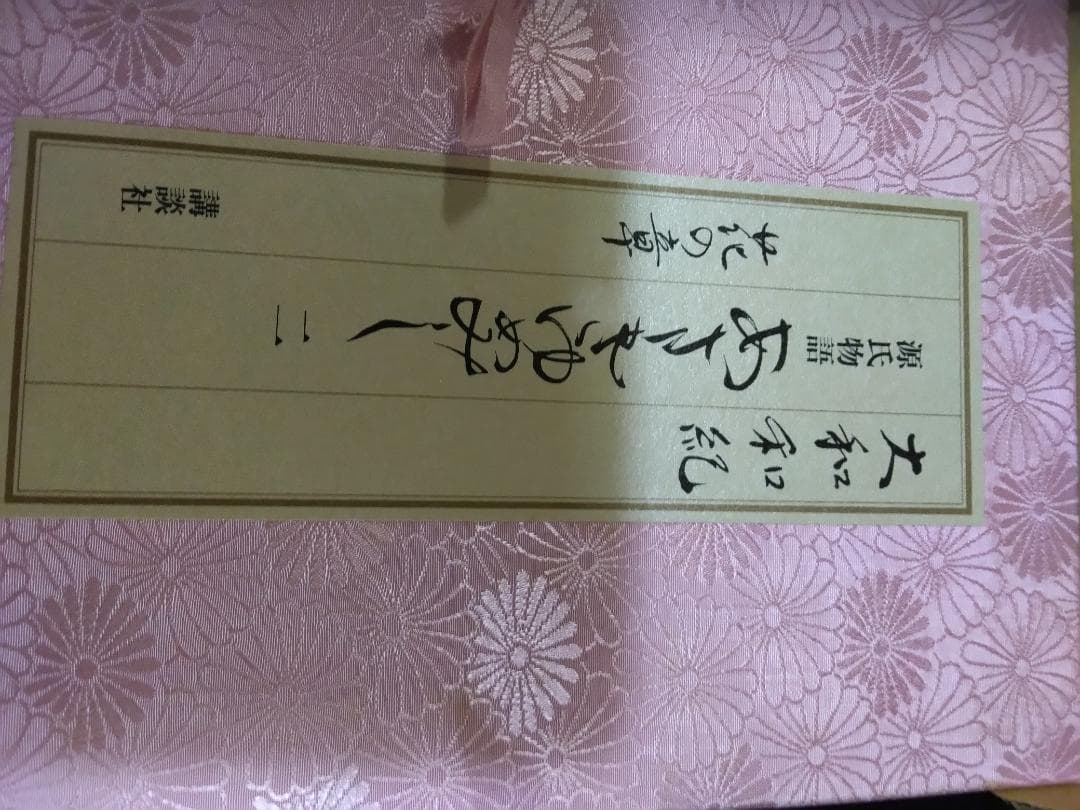 大和和紀
源氏物語
あさきゆめみし 二
花の章
講談社